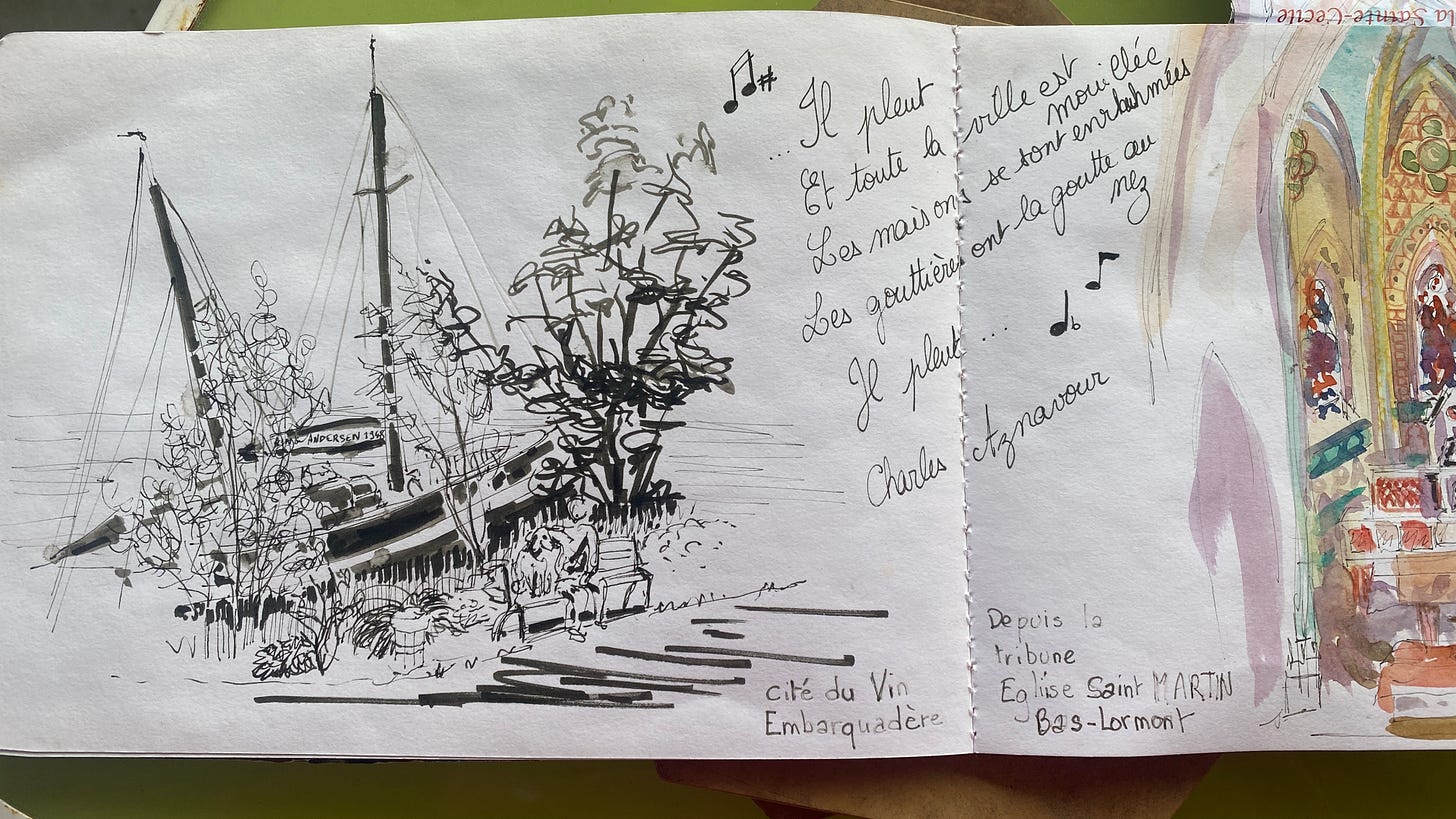 la Sainte-Cécile
... Il pleut
Et toute la ville est mouillée
Les maisons se sont enrhumées
Les gouttières ont la goutte au
nez
Il pleut ...
Charles Aznavour
ANDERSEN
cité du Vin
Embarquadère
Depuis la
tribune
Eglise Saint MARTIN
Bas-Lormont